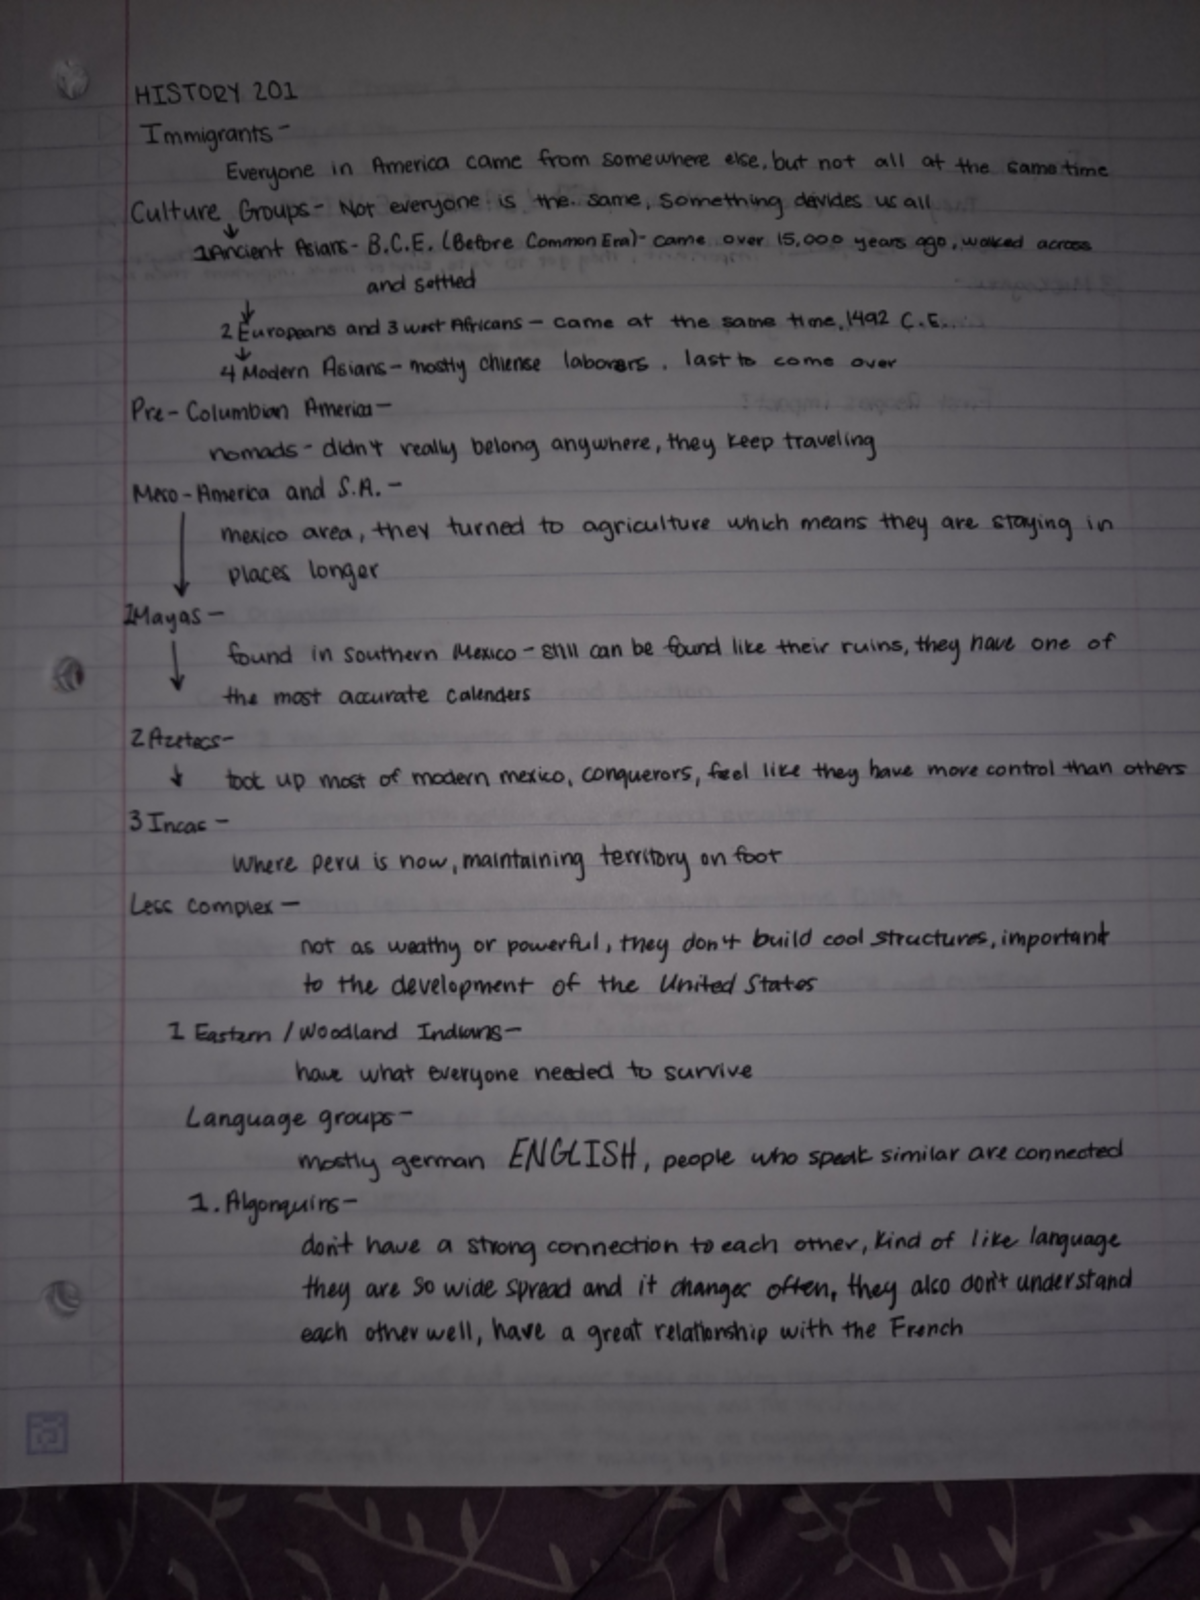 HISTORY 201
Immigrants-
Everyone in America came from somewhere else, but not all at the same time
Culture Groups- Not everyone is the same, something devides us all
1 Ancient Asians- B.C.E. (Before Common Era)- came over 15,000 years ago, walked across
and settled
2 Europeans and 3 west Africans - came at the same time, 1492 C.E.
4 Modern Asians- mostly chiense laborers, last to come over
Pre-Columbian America-
nomads- didn't really belong anywhere, they keep traveling
Meso-America and S.A.-
mexico area, they turned to agriculture which means they are staying in
places longer
1 Mayas-
found in southern Mexico - still can be found like their ruins, they have one of
the most accurate calenders
2 Azetecs-
took up most of modern mexico, conquerors, feel like they have more control than others
3 Incas-
where peru is now, maintaining territory on foot
Less complex-
not as weathy or powerful, they don't build cool structures, important
to the development of the United States
1 Eastern / Woodland Indians-
have what everyone needed to survive
Language groups-
mostly german ENGLISH, people who speak similar are connected
1. Algonquins-
don't have a strong connection to each other, kind of like language
they are so wide spread and it changes often, they also don't understand
each other well, have a great relationship with the French